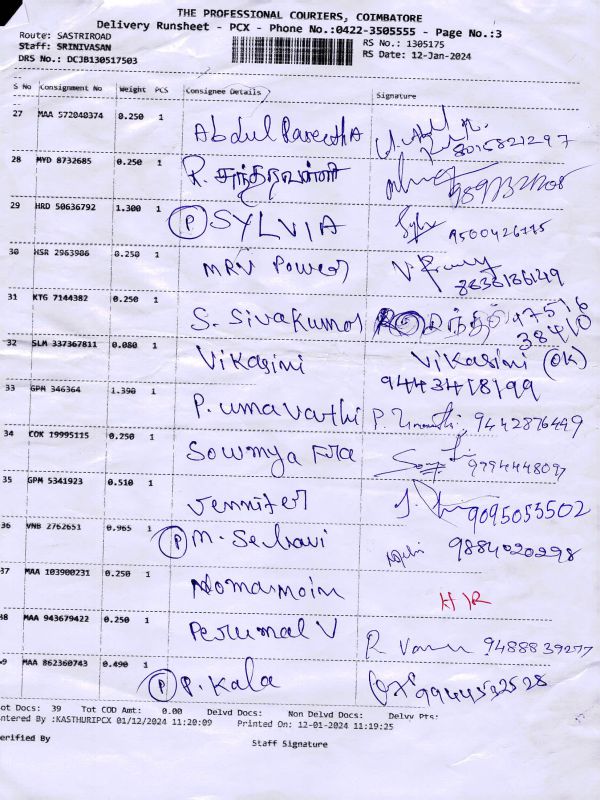 THE PROFESSIONAL COURIERS, COIMBATORE
Delivery Runsheet - PCX - Phone No.:0422-3505555 - Page No.:3
Route: SASTRIROAD
RS No.: 1305175
Staff: SRINIVASAN
RS Date: 12-Jan-2024
DRS No.: DCJB130517503
S No Consignment No Weight PCS Consignee Details Signature
27 MAA 572040374 0.250 1 Abdul Pareeth A 8015821297
28 MYD 8732685 0.250 1 R.
29 HRD 50636792 1.300 1 P SYLVIA 9500426775
30 HSR 2963986 0.250 1 MRV Power
31 KTG 7144382 0.250 1 S. Sivakumar 97516
38410
32 SLM 337367811 0.080 1 Vikasini Vikasini (OK)
9443418199
33 GPM 346364 1.390 1 P. umavathi P. 9442876449
34 COK 19995115 0.250 1 Sowmya 9794448097
35 GPM 5341923 0.510 1 Jennifer 9095055502
36 VNB 2762651 0.965 1 P M. Selvavi 9884020298
37 MAA 103900231 0.250 1 H/R
38 MAA 943679422 0.250 1 Perumal V R 9488839277
39 MAA 862360743 0.490 1 P P. Kala 9944532528
ot Docs: 39 Tot COD Amt: 0.00 Delvd Docs: Non Delvd Docs: Delvy Pts:
ntered By :KASTHURIPCX 01/12/2024 11:20:09 Printed On: 12-01-2024 11:19:25
erified By
Staff Signature